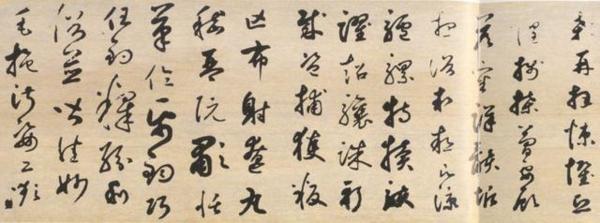 顙再拜悚懼恐
惶牋牒簡要顧
答審詳骸垢
想浴執熱願涼
驢騾特犢駭
躍超驤誅斬
賊盜捕獲叛
亡布射遼丸
嵇琴阮嘯恬
筆倫紙鈞巧
任釣釋紛利
俗並皆佳妙
毛施淑姿工顰